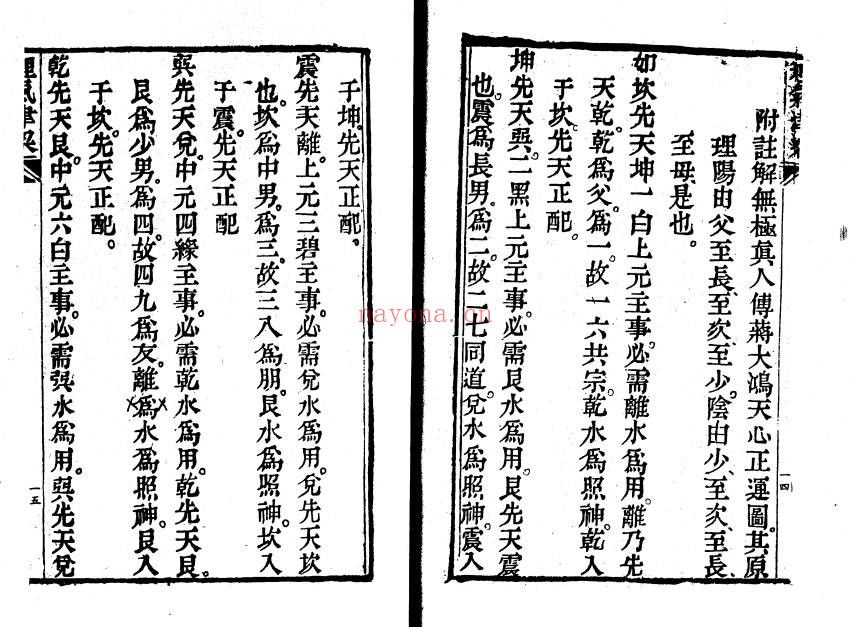 附註解無極眞人傳蔣大鴻天心正運圖。其原
理陽由父至長、至次、至少。陰由少、至次、至長、
至母、是也。
如坎先天坤一白上元主事。必需離水爲用。離乃先
天乾。乾爲父。爲一。故一六共宗。乾水爲照神。乾入
于坎。先天正配。
坤先天巽。二黑上元主事。必需艮水爲用。艮先天震
也。震爲長男。爲二。故二七同道。兌水爲照神。震入
一四
于坤。先天正配。
震先天離。上元三碧主事。必需兌水爲用。兌先天坎
也。坎爲中男。爲三。故三八爲朋。艮水爲照神。坎入
于震。先天正配
巽先天兌。中元四綠主事。必需乾水爲用。乾先天艮。
艮爲少男。爲四。故四九爲友。離爲水爲照神。艮入
于坎。先天正配。
乾先天艮。中元六白主事。必需巽水爲用。巽先天兌
一五
nayona.cn